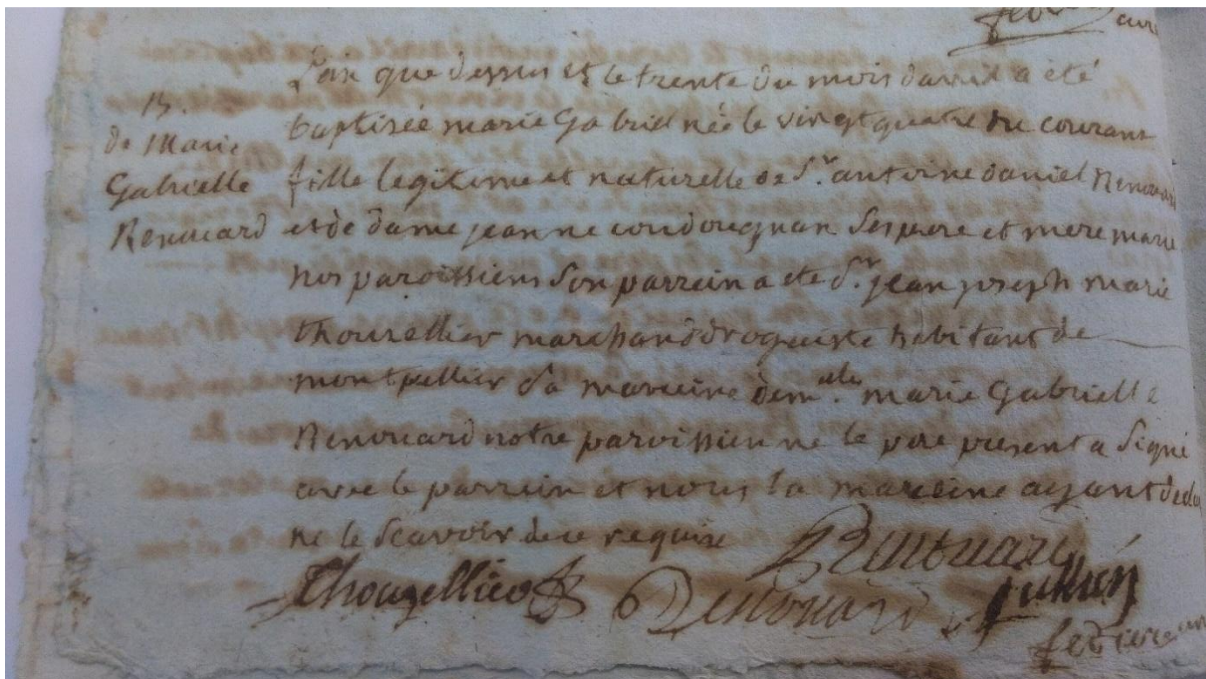 curé
L'an que dessus et le trente du mois davril a été
B.
de Marie
Gabrielle
Renouard
baptisée marie Gabriel née le vingt quatre du courant
fille legitime et naturelle de Sr. antoine daniel Renouard
et de dame jeanne coudougnan ses pere et mere marie
nos paroissiens son parrein a ete Sr. jean joseph marie
thouzellier marchand droguiste habitant de
montpellier sa marreine demlle. marie Gabrielle
Renouard notre paroissienne le pere present a signé
avec le parrein et nous la marreine ayant
ne le scavoir de ce requise
Renouard
Thouzellier Renouard jullien
curé